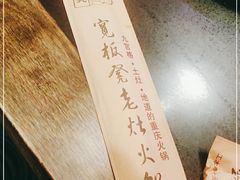 九宫格·土灶·地道的重庆火锅
宽板凳老灶火锅